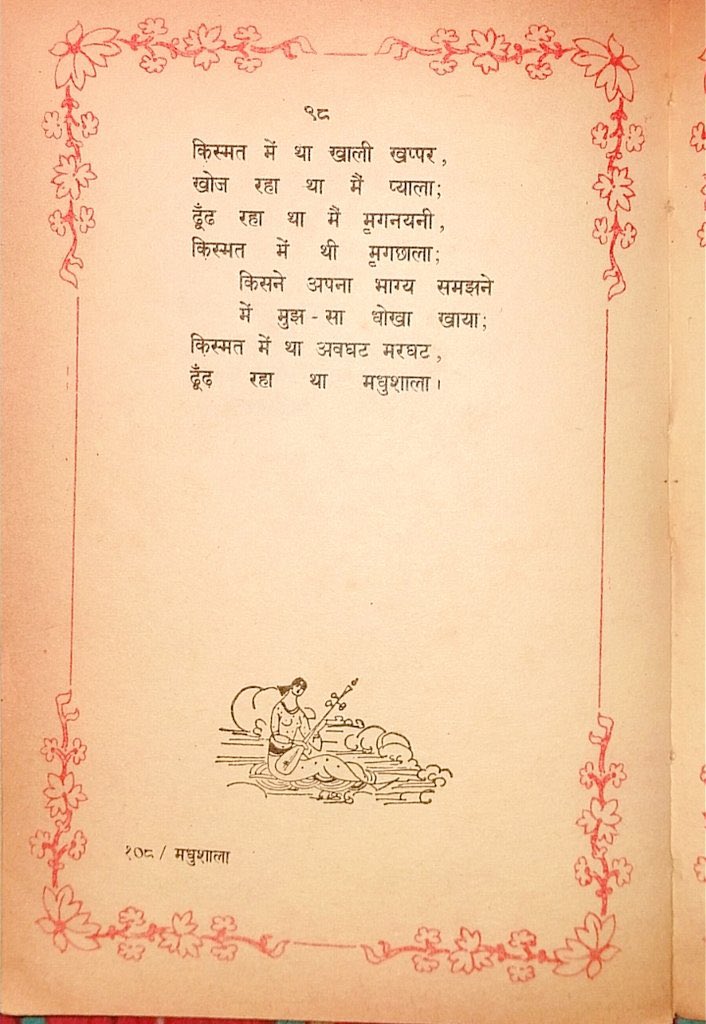 ९८
किस्मत में था खाली खप्पर,
खोज रहा था मैं प्याला;
ढूँढ रहा था मैं मृगनयनी,
किस्मत में थी मृगछाला;
किसने अपना भाग्य समझने
में मुझ-सा धोखा खाया;
किस्मत में था अवघट मरघट,
ढूँढ़ रहा था मधुशाला।
१०८ / मधुशाला